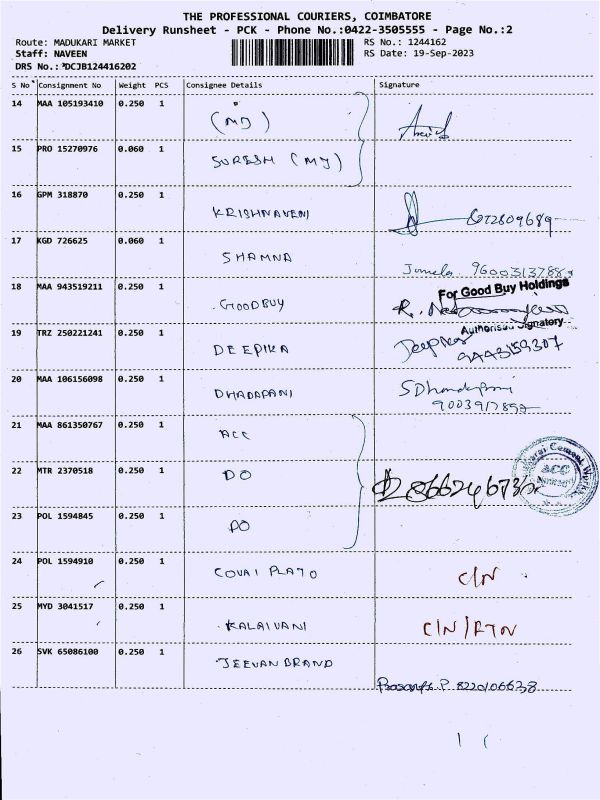 THE PROFESSIONAL COURIERS, COIMBATORE
Delivery Runsheet - PCK - Phone No.:0422-3505555 - Page No.:2
Route: MADUKARI MARKET RS No.: 1244162
Staff: NAVEEN RS Date: 19-Sep-2023
DRS No.: DCJB124416202
S No Consignment No Weight PCS Consignee Details Signature
14 MAA 105193410 0.250 1 (MJ)
15 PRO 15270976 0.060 1 SURESH (MJ)
16 GPM 318870 0.250 1 KRISHNAVENI
17 KGD 726625 0.060 1 SHAMNA
18 MAA 943519211 0.250 1 GOODBUY For Good Buy Holdings
Authorised Signatory
19 TRZ 250221241 0.250 1 DEEPIKA
20 MAA 106156098 0.250 1 DHADAPANI
21 MAA 861350767 0.250 1 ACC
22 MTR 2370518 0.250 1 DO ACC
23 POL 1594845 0.250 1 DO
24 POL 1594910 0.250 1 COVAI PLATO C/N
25 MYD 3041517 0.250 1 KALAIVANI C/N/RTN
26 SVK 65086100 0.250 1 JEEVAN BRAND
8220106638